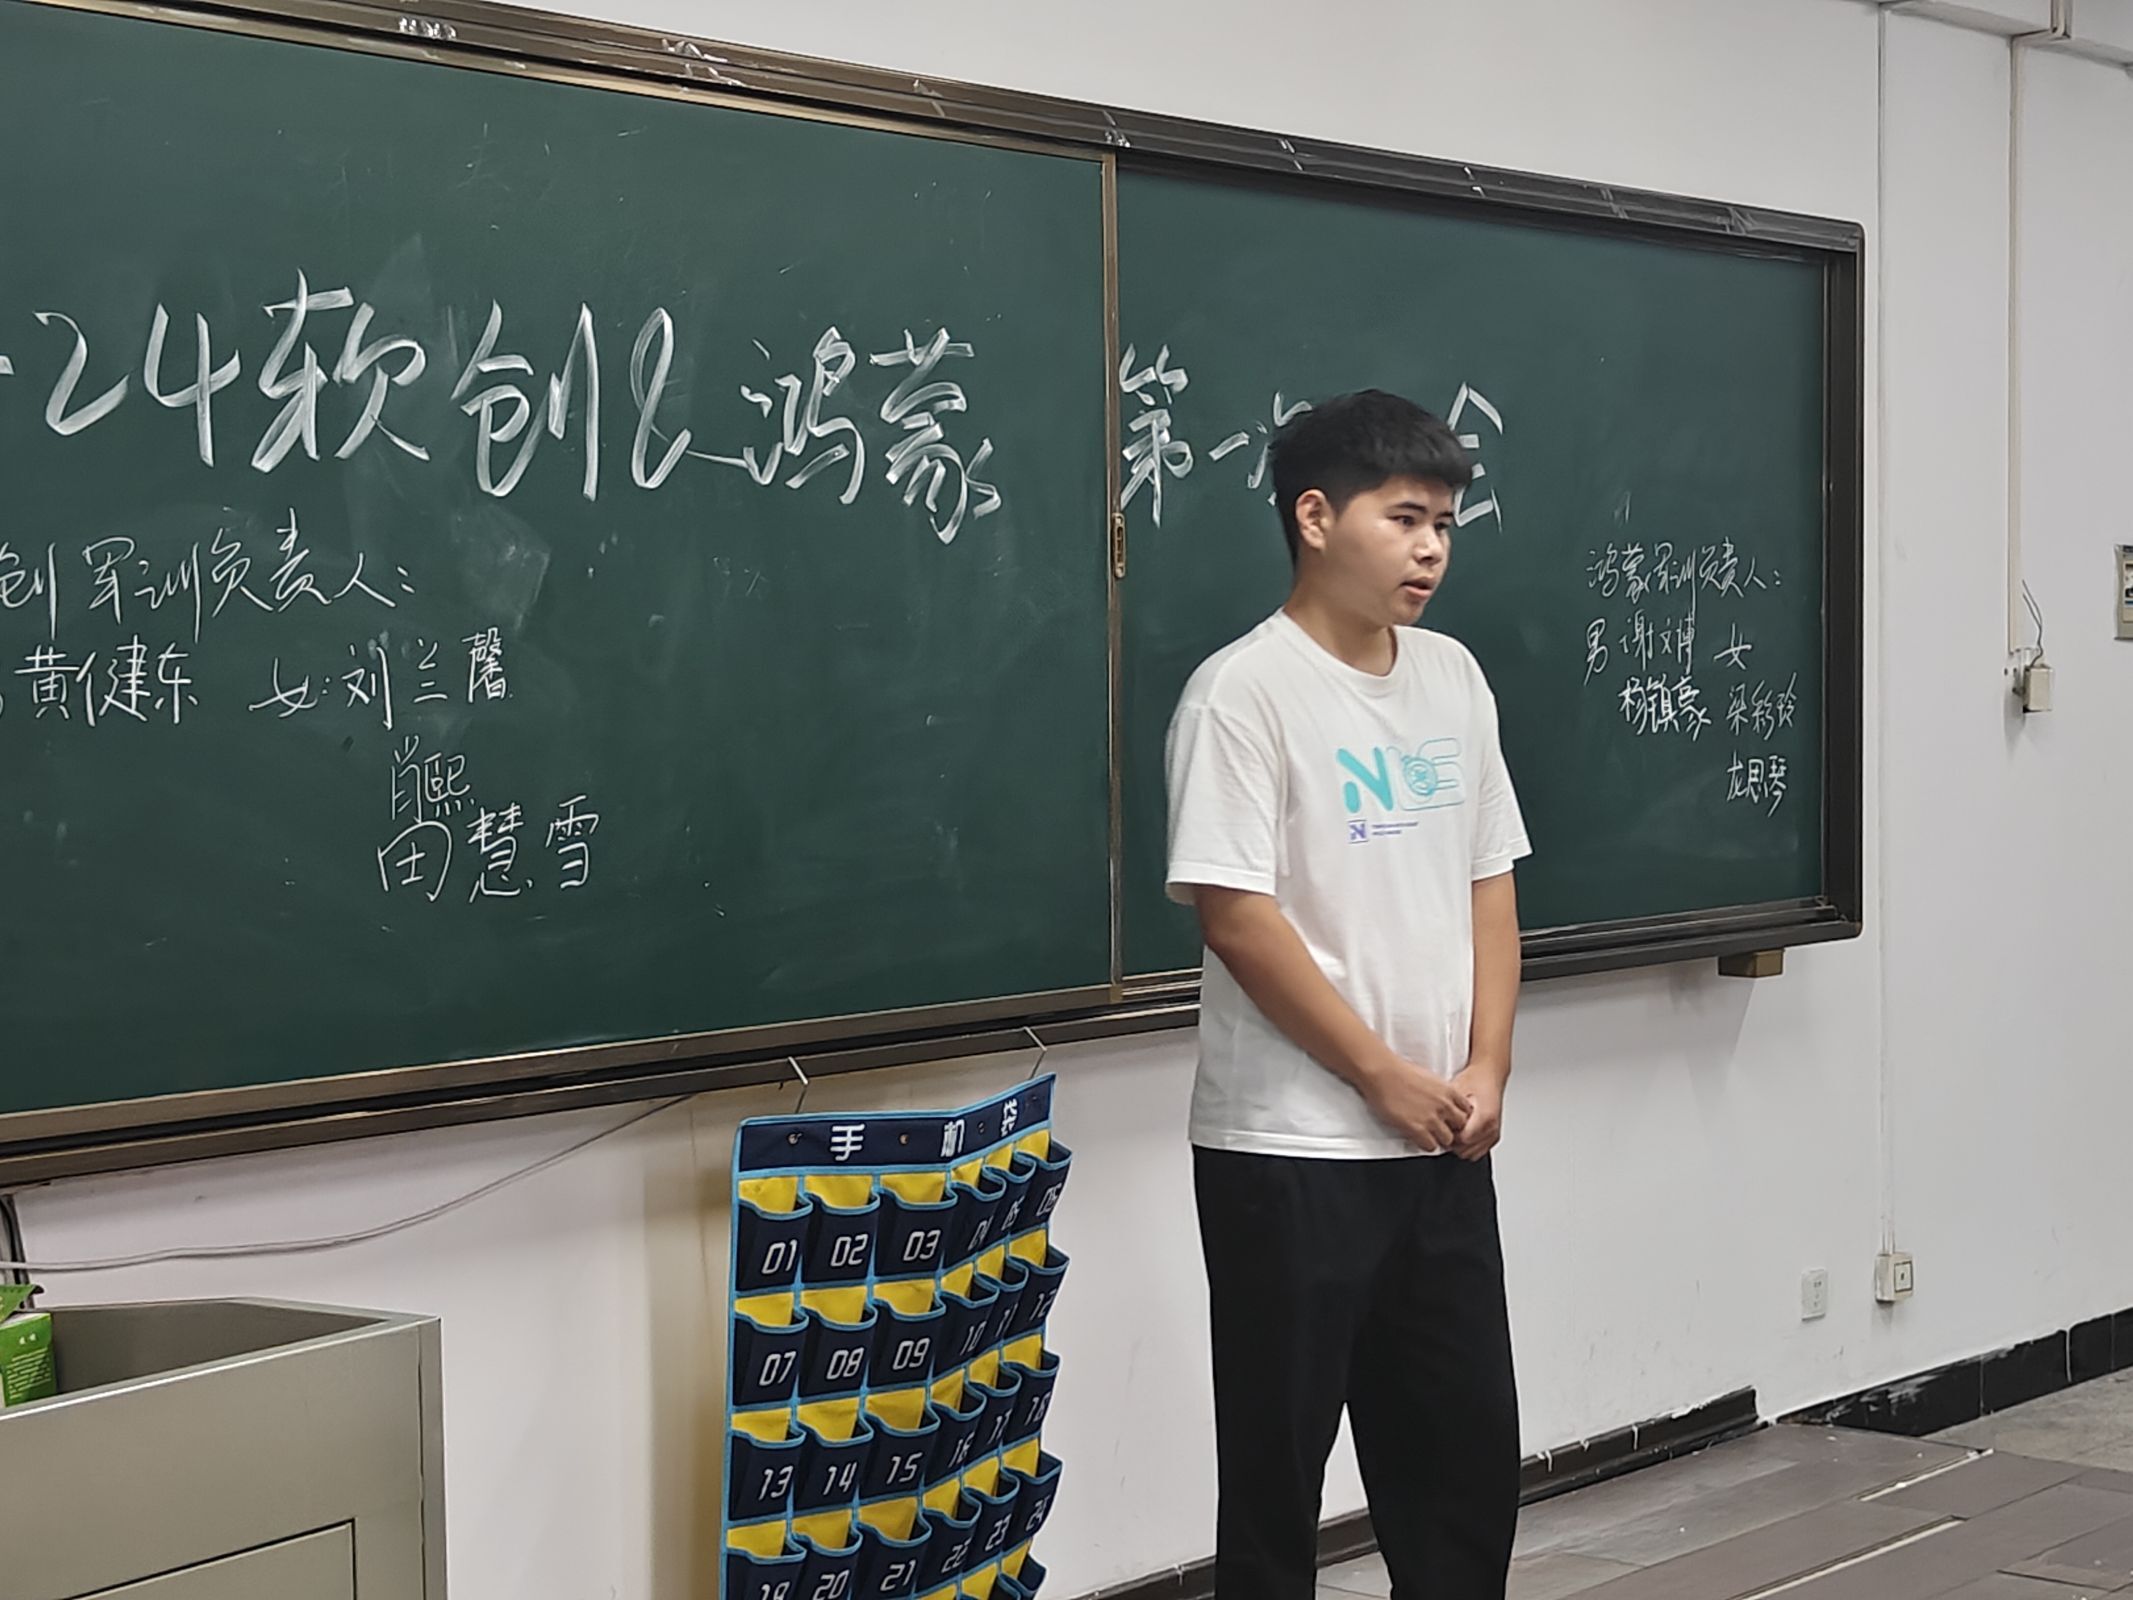 24软创&鸿蒙 第一次 会
创军训负责人:
黄健东 女:刘兰馨
肖熙
田慧雪
鸿蒙军训负责人:
男 谢文博 女
杨镇豪 梁彩玲
龙思琴
N
手机袋
01 02 03 04 05 06
07 08 09 10 11 12
13 14 15 16 17 18
19 20 21 22 23 24